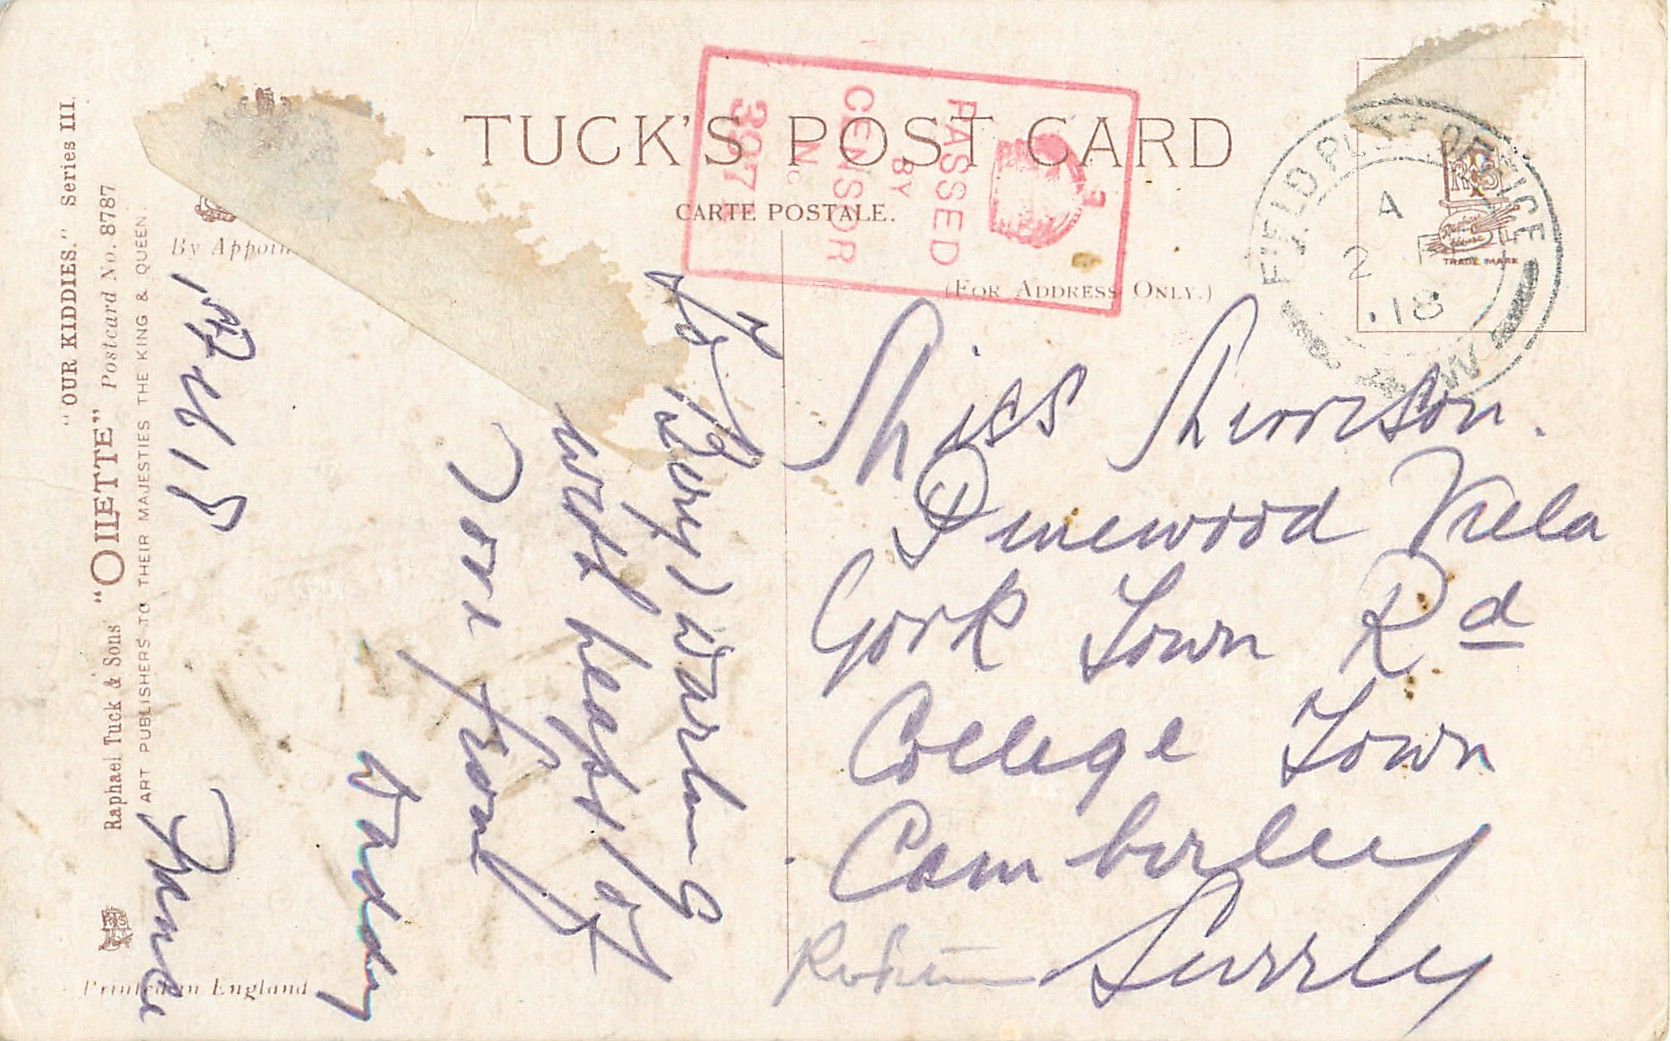 TUCK'S POST CARD
CARTE POSTALE.
(FOR ADDRESS ONLY.)
PASSED
BY
CENSOR
No
FIELD POST OFFICE
A
2
.18
R S
TRADE MARK
"OUR KIDDIES." Series III.
Raphael Tuck & Sons' "OILETTE" Postcard No. 8787
ART PUBLISHERS TO THEIR MAJESTIES THE KING & QUEEN.
By Appoin
Printed in England
France
To Beryl Darling
with heaps of
love from
Daddy
Miss
Pinewood
York Town Rd
College Town
Camberley
Surrey